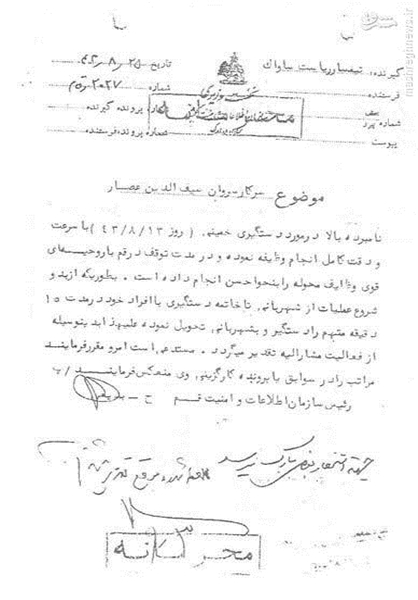 گیرنده: تیمسار ریاست ساواک
تاریخ ۲۵-۸-۴۳
فرستنده
شماره ۲۰۲۷
نخست وزیری
شماره پرونده گیرنده
شماره پیرو
پیوست
شماره پرونده فرستنده
موضوع سرکار سروان سیف الدین عصار
نامبرده بالا در مورد دستگیری خمینی ( روز ۴۳/۸/۱۳ ) با سرعت
و دقت کامل انجام وظیفه نموده و در مدت توقف در قم با روحیه‌ای
قوی وظایف محوله را بنحو احسن انجام داده است . بطوریکه از بدو
شروع عملیات از شهربانی تا خاتمه دستگیری با افراد خود در مدت ۱۵
دقیقه متهم را دستگیر و بشهربانی تحویل نموده علیهذا بدینوسیله
از فعالیت مشارالیه تقدیر میگردد . مستدعی است امر و مقرر فرمایند
مراتب را در سوابق یا پرونده کارگزینی وی منعکس فرمایند
رئیس سازمان اطلاعات و امنیت قم
محرمانه
mashreghnews.ir